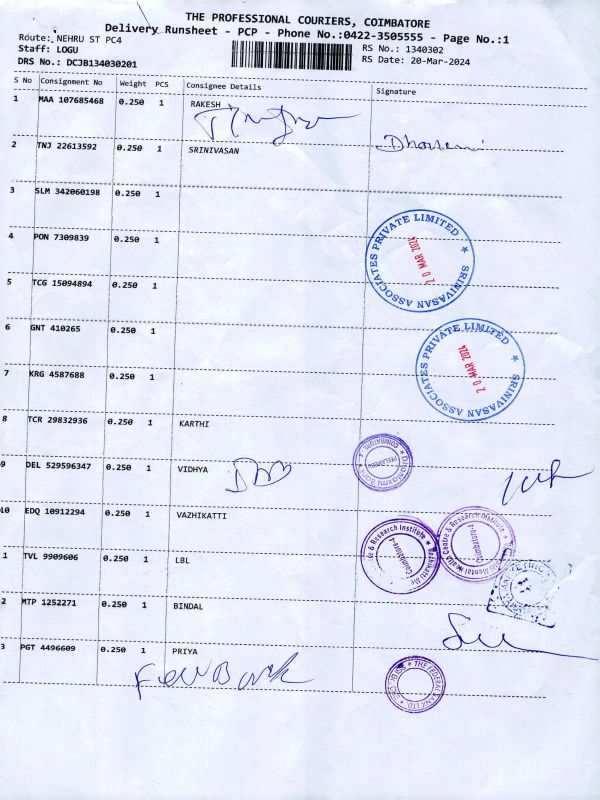 THE PROFESSIONAL COURIERS, COIMBATORE
Delivery Runsheet - PCP - Phone No.:0422-3505555 - Page No.:1
Route: NEHRU ST PC4
RS No.: 1340302
Staff: LOGU
RS Date: 20-Mar-2024
DRS No.: DCJB134030201
S No Consignment No Weight PCS Consignee Details Signature
1 MAA 107685468 0.250 1 RAKESH
2 TNJ 22613592 0.250 1 SRINIVASAN
3 SLM 342060198 0.250 1
4 PON 7309839 0.250 1
SRINIVASAN ASSOCIATES PRIVATE LIMITED
20 MAR 2024
5 TCG 15094894 0.250 1
6 GNT 410265 0.250 1
SRINIVASAN ASSOCIATES PRIVATE LIMITED
20 MAR 2024
7 KRG 4587688 0.250 1
8 TCR 29832936 0.250 1 KARTHI
9 DEL 529596347 0.250 1 VIDHYA
10 EDQ 10912294 0.250 1 VAZHIKATTI
& Research Institute
Coimbatore-4
Mental Health Centre & Research Institute
Coimbatore-4
1 TVL 9909606 0.250 1 LBL
2 MTP 1252271 0.250 1 BINDAL
3 PGT 4496609 0.250 1 PRIYA
THE FEDERAL BANK LTD